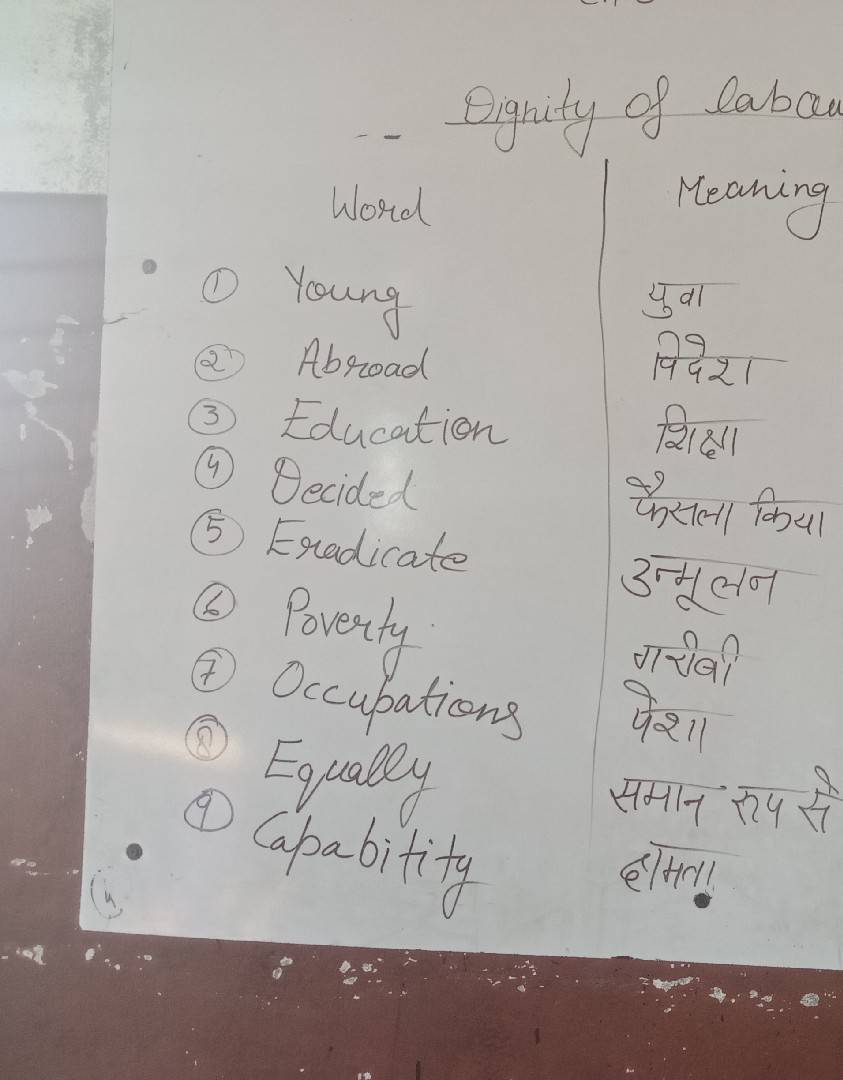 Dignity of labou
Word Meaning
① Young युवा
② Abroad विदेश
③ Education शिक्षा
④ Decided फैसला किया
⑤ Eradicate उन्मूलन
⑥ Poverty गरीबी
⑦ Occupations पेशा
⑧ Equally समान रूप से
⑨ Capabitity क्षमता